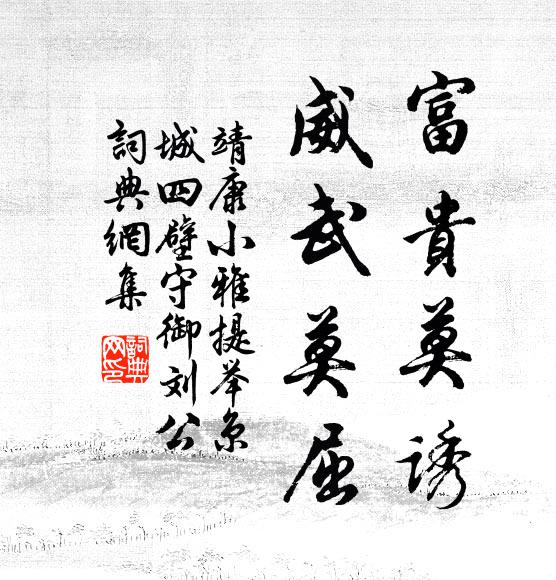 富貴莫誘
威武莫屈
靖康小雅提举京
城四壁守御刘公
詞典網集
詞典
网印